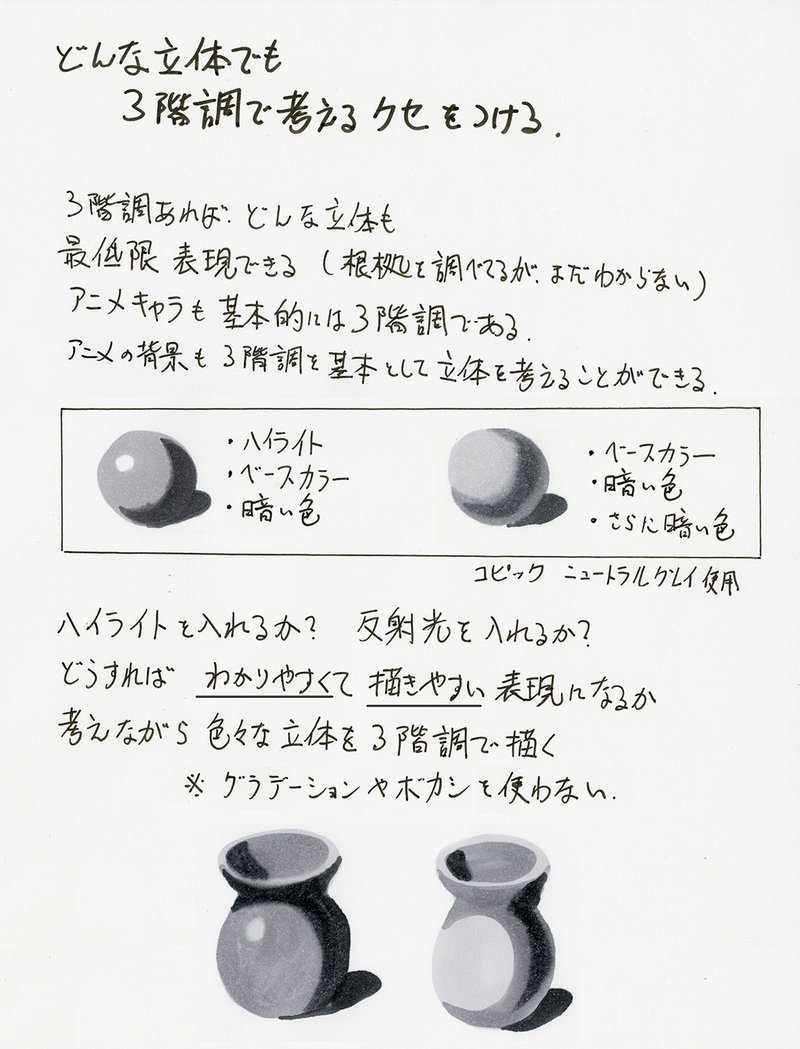 どんな立体でも
3階調で考えるクセをつける.
3階調あれば、どんな立体も
最低限 表現できる (根拠を調べてるが、まだわからない)
アニメキャラも基本的には3階調である.
アニメの背景も3階調を基本として立体を考えることができる.
・ハイライト
・ベースカラー
・暗い色
・ベースカラー
・暗い色
・さらに暗い色
コピック ニュートラルグレイ使用
ハイライトを入れるか? 反射光を入れるか?
どうすれば わかりやすくて 描きやすい 表現になるか
考えながら 色々な立体を3階調で描く
※ グラデーションやボカシを使わない.